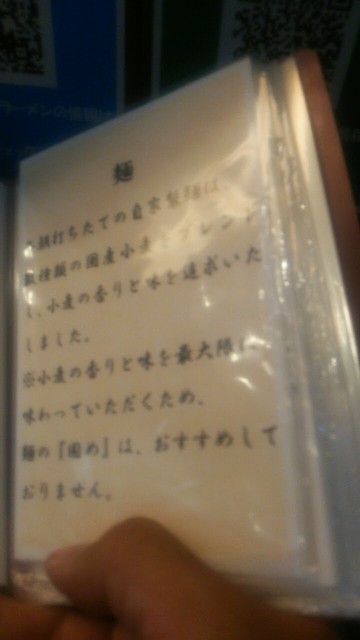 ラーメンの情報は
麺
打ちたての自家製麺は、
数種類の国産小麦をブレンド
し、小麦の香りと味を追求いた
しました。
※小麦の香りと味を最大限に
味わっていただくため、
麺の『固め』は、おすすめして
おりません。